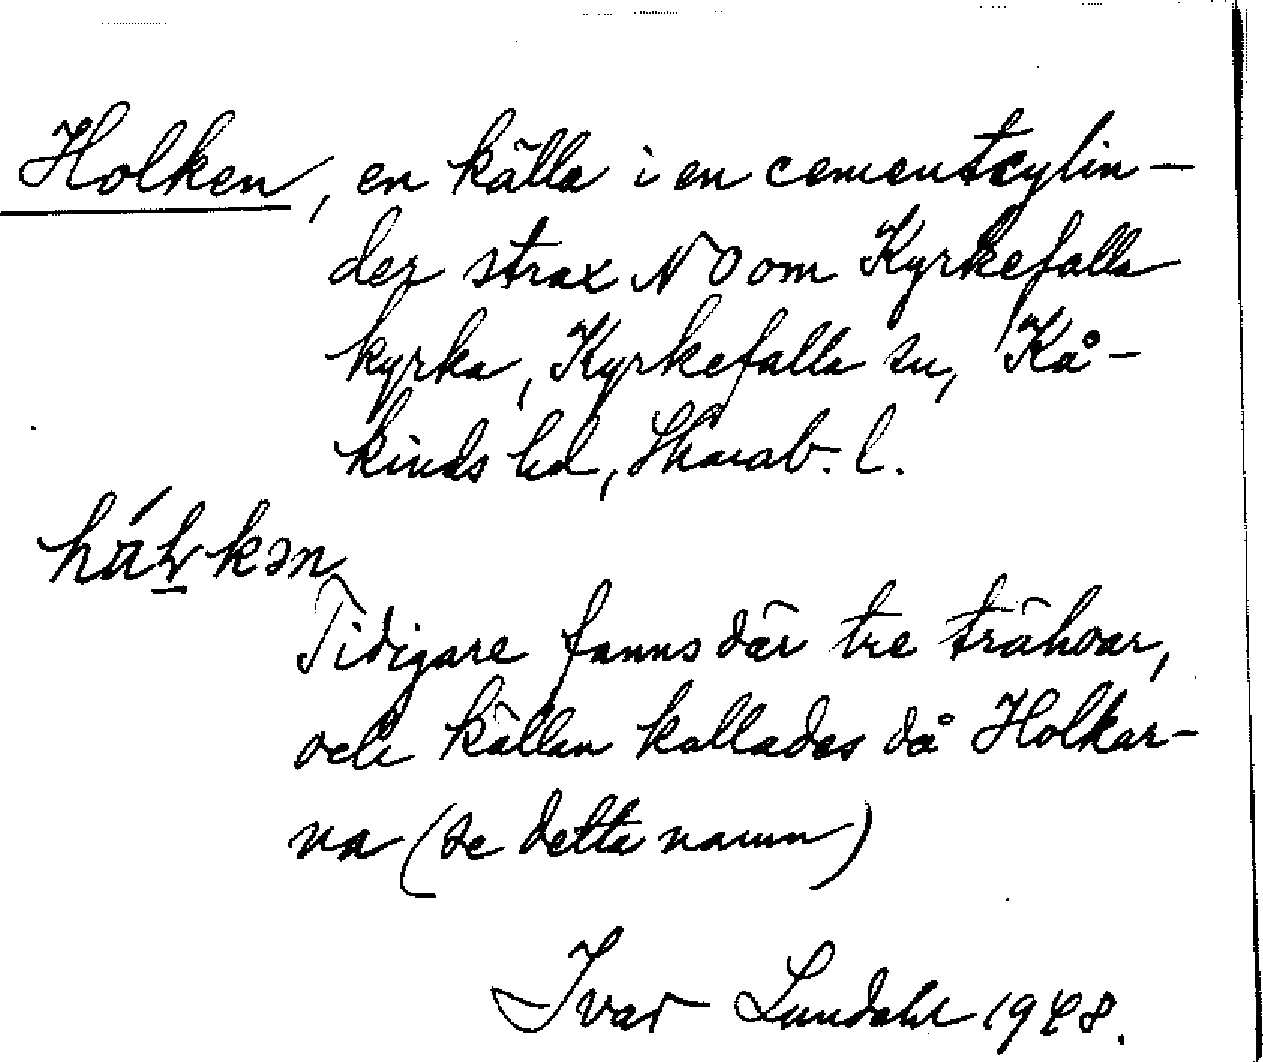 Holken, en källa i en cementcylin-
der strax NO om Kyrkefalla
kyrka, Kyrkefalla sn, Kå-
kinds hd, Skarab. l.
Tidigare fanns där tre trähoar,
och källan kallades då Holkar-
na (se detta namn)
Ivar Lundahl 1948.